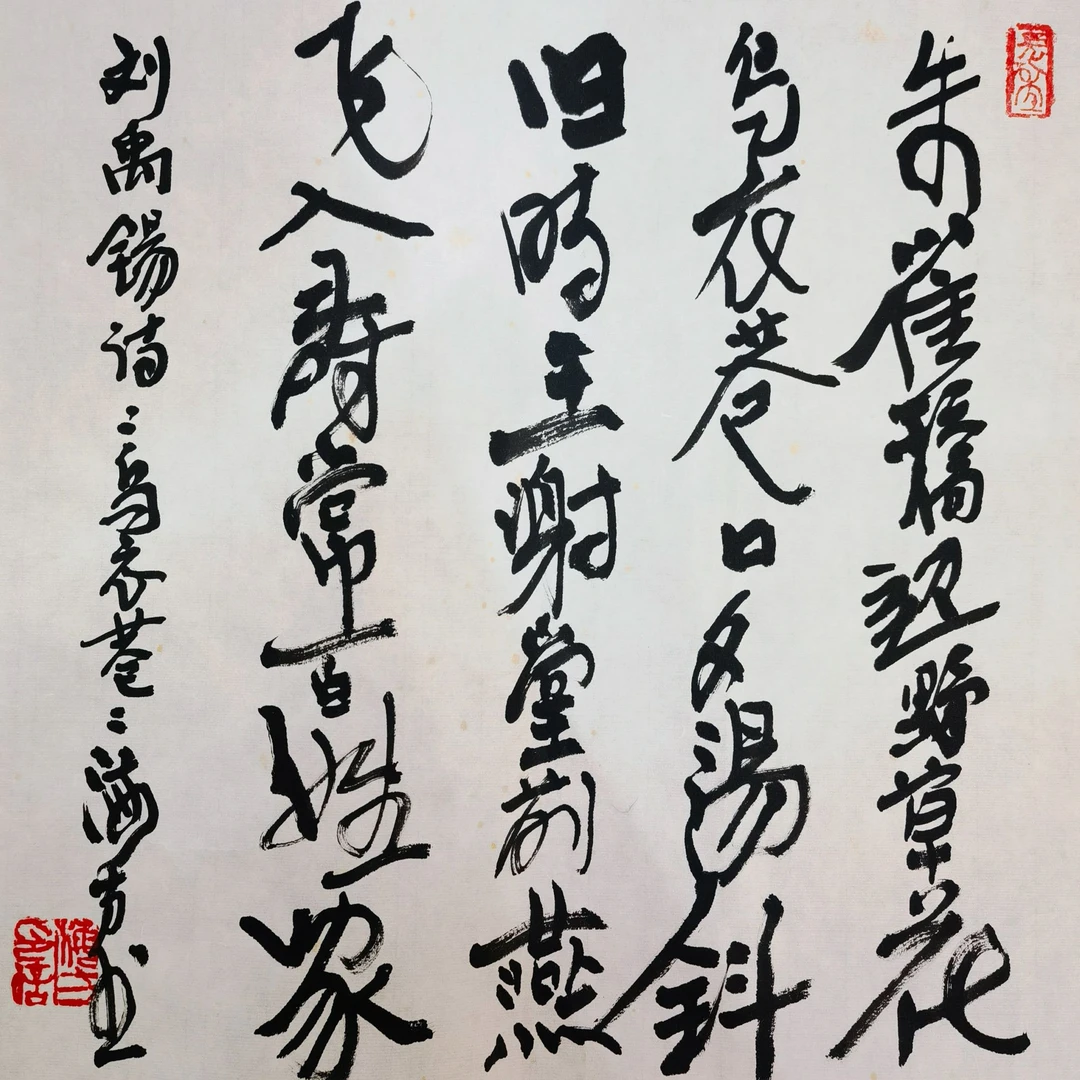 朱雀橋边野草花
烏衣巷口夕陽斜
旧時王謝堂前燕
飞入尋常百姓家
刘禹锡诗：烏衣巷：海方书